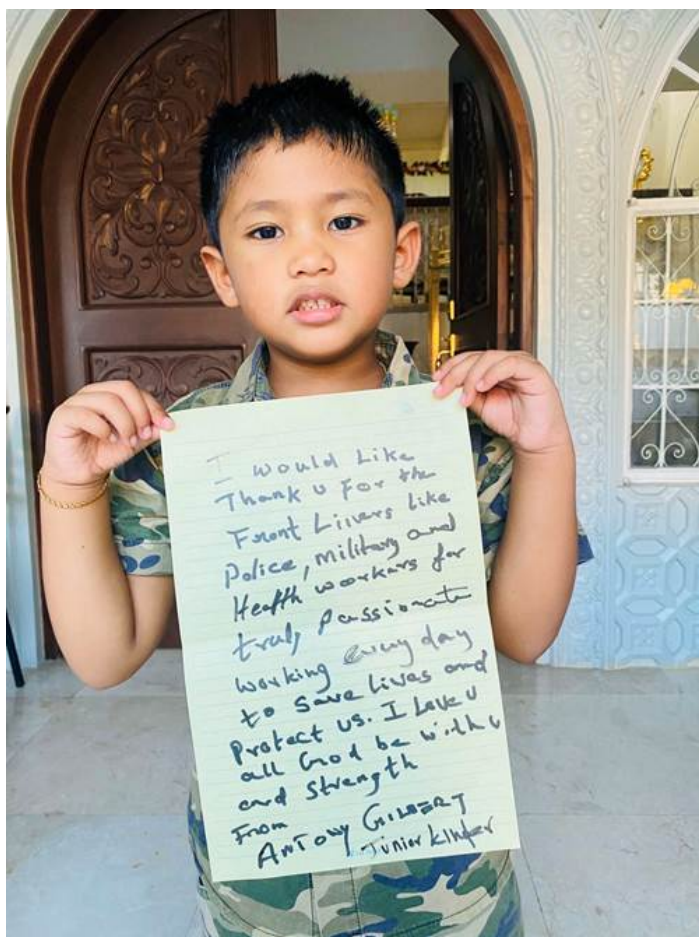 I would Like
Thank u For the
Front Liners Like
Police, military and
Health workers for
truly passionate
working every day
to save Lives and
Protect us. I Love u
all God be with u
and Strength
From
ANTONY GILBERT
Junior Kinder